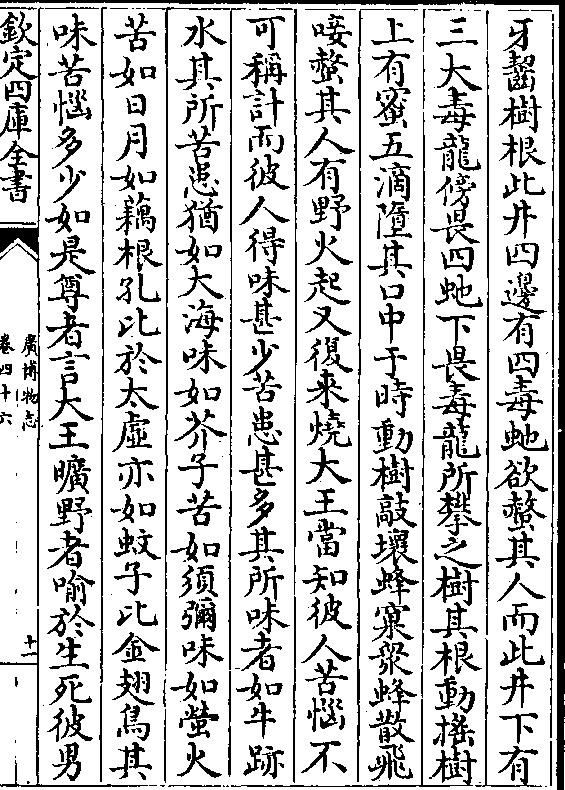 牙齧樹根此井四邊有四毒虵欲螫其人而此井下有
三大毒龍傍畏四虵下畏毒龍所攀之樹其根動揺樹
上有蜜五滴墮其口中于時動樹敲壞蜂窠衆蜂散飛
唼螫其人有野火起又復来燒大王當知彼人苦惱不
可稱計而彼人得味甚少苦患甚多其所味者如牛跡
水其所苦患猶如大海味如芥子苦如須彌味如螢火
苦如日月如藕根孔比於太虛亦如蚊子比金翅鳥其
味苦惱多少如是尊者言大王曠野者喻於生死彼男
欽定四庫全書
廣博物志
卷四十六
十一